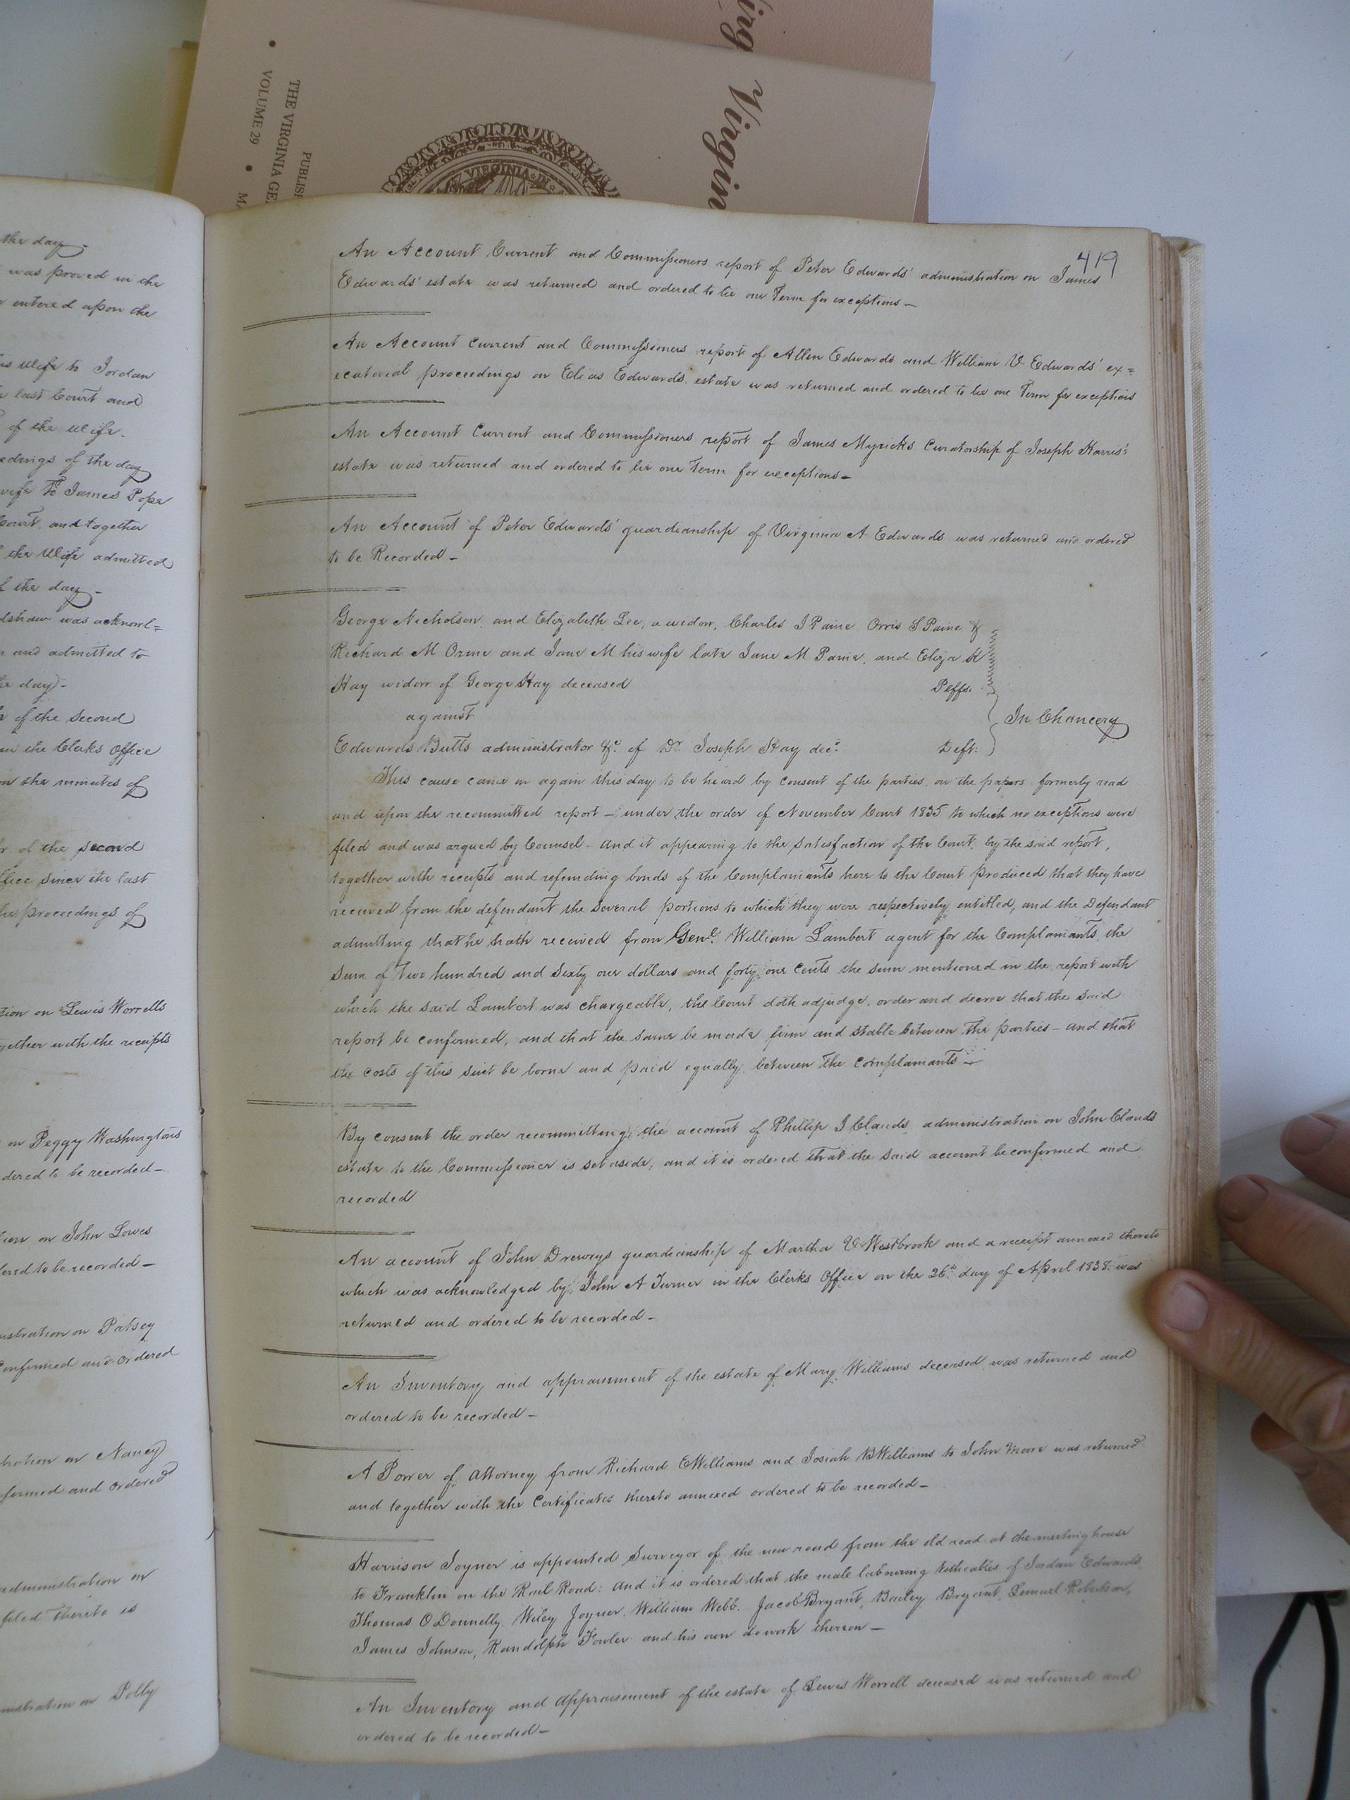 ing Virgin
PUBLIS
THE VIRGINIA GE
VOLUME 29
M
VIRGINIA
the day
was proved in the
entered upon the
his wife to Jordan
last Court and
of the wife.
edings of the day
wife to James Pope
Court and together
the Wife admitted
the day.
dshaw was acknowl=
and admitted to
day.
of the second
in the Clerks Office
on the minutes of
of the second
ffice since the last
the proceedings of
tion on Lewis Worrells
gether with the receipts
on Peggy Washingtons
dered to be recorded
on John Lowes
dered to be recorded
nistration on Patsey
Confirmed and ordered
tration on Nancy
firmed and ordered
administration on
filed thereto is
nistration on Polly
419
An Account Current and Commissioners report of Peter Edwards' administration on James
Edwards' estate was returned and ordered to lie one Term for exceptions
An Account Current and Commissioners report of Allen Edwards and William V. Edwards' ex=
ecutorial proceedings on Elias Edwards estate was returned and ordered to lie one Term for exceptions
An Account Current and Commissioners report of James Myricks Curatorship of Joseph Harris's
estate was returned and ordered to lie one Term for exceptions
An Account of Peter Edwards' guardianship of Virginia A Edwards was returned and ordered
to be Recorded
George Nicholson and Elizabeth Lee, a widow, Charles I Paine Orris S Paine &
Richard M Orme and Jane M his wife late Jane M Paine, and Eliza K
Hay widow of George Hay deceased Plffs.
against In Chancery
Edwards Butts administrator &c of Dr. Joseph Hay decd. Deft.
This cause came on again this day to be heard by consent of the parties, on the papers formerly read
and upon the recommitted report under the order of November Court 1835 to which no exceptions were
filed and was argued by Counsel. And it appearing to the Satisfaction of the Court by the said report,
together with receipts and refunding bonds of the Complainants here to the Court produced that they have
received from the defendant the several portions to which they were respectively entitled, and the defendant
admitting that he hath received from Genl. William Lambert agent for the Complainants the
sum of Two hundred and Sixty one dollars and forty one Cents the sum mentioned in the report with
which the said Lambert was chargeable, the Court doth adjudge, order and decree that the said
report be confirmed, and that the same be made firm and stable between the parties and that
the costs of this suit be borne and paid equally between the complainants
By consent the order recommitting the account of Phillip I Clauds administration on John Clauds
estate to the Commissioner is set aside, and it is ordered that the said account be confirmed and
recorded
An account of John Drewrys guardianship of Martha E Westbrook and a receipt annexed thereto
which was acknowledged by John A Turner in the Clerks Office on the 26th. day of April 1838. was
returned and ordered to be recorded
An Inventory and appraisment of the estate of Mary Williams deceased was returned and
ordered to be recorded
A Power of Attorney from Richard E Williams and Josiah B Williams to John Moore was returned
and together with the Certificates thereto annexed ordered to be recorded
Harrison Joyner is appointed Surveyor of the new road from the old road at the meeting house
to Franklin on the Rail Road: And it is ordered that the male labouring tithables of Jordan Edwards
Thomas O'Donnelly Wiley Joyner, William Webb, Jacob Bryant, Bailey Bryant, Lemuel Roberson,
James Johnson, Randolph Fowler and his own do work thereon
An Inventory and Appraisement of the estate of Lewis Worrell deceased was returned and
ordered to be recorded